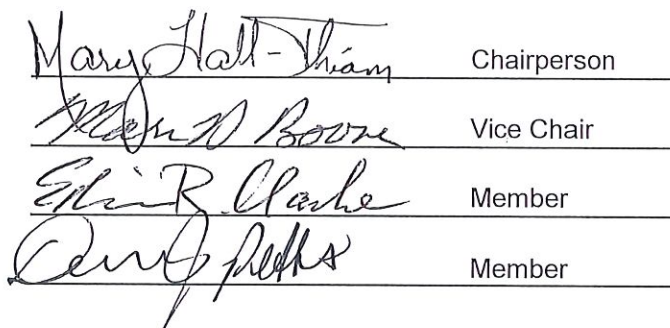 Mary Hall-Thiam Chairperson
Boone Vice Chair
R. Clarke Member
Member